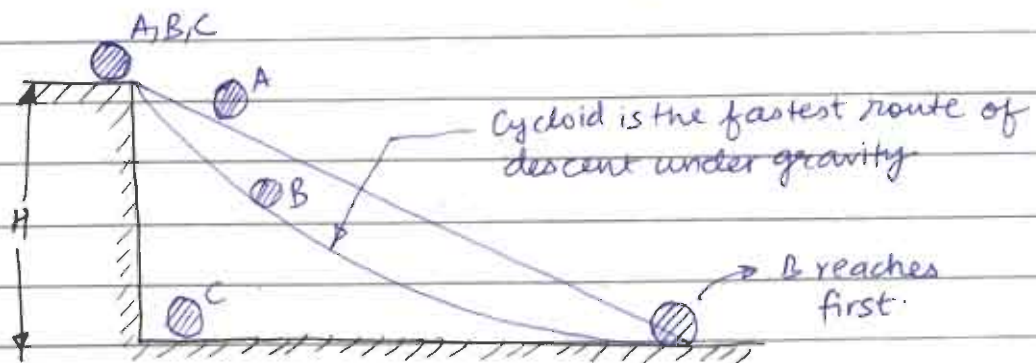 A, B, C
A
Cycloid is the fastest route of
descent under gravity
B
H
C
B reaches
first.